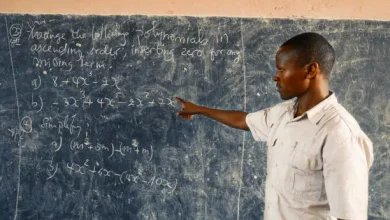 ② Arrange the following polynomials in
ascending order, inserting zero for any
missing term.
a) 8 + 4x² - 2x
b) - 3x² + 4x - 2x + 2x
④ Simplify
a) (m² + 5m) - (m² + m)
b) 4x² + 6x - (4x² - 10x)